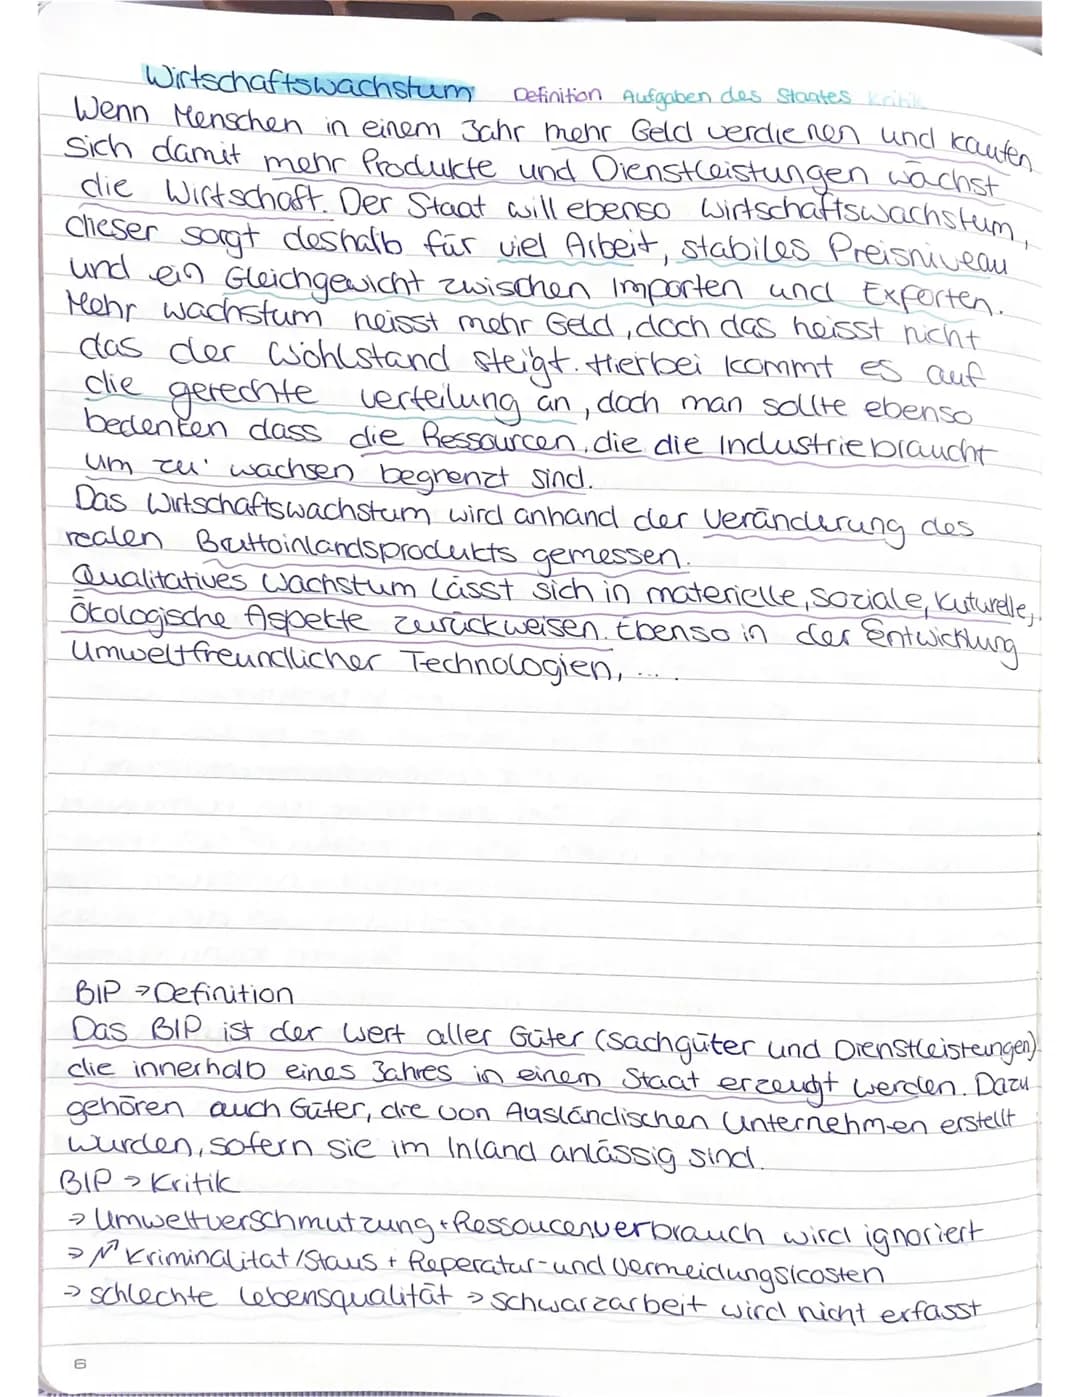 Wirtschaftswachstum Definition Aufgaben des Staates Kritik
Wenn Menschen in einem Jahr mehr Geld verdienen und kaufen
sich damit mehr Produkte und Dienstleistungen wächst
die Wirtschaft. Der Staat will ebenso Wirtschaftswachstum,
dieser sorgt deshalb für viel Arbeit, stabiles Preisniveau
und ein Gleichgewicht zwischen Importen und Exporten.
Mehr wachstum heisst mehr Geld, doch das heisst nicht
das der Wohlstand steigt. Hierbei kommt es auf
die gerechte verteilung an, doch man sollte ebenso
bedenken dass die Ressourcen, die die Industrie braucht
um zu wachsen begrenzt sind.
Das Wirtschaftswachstum wird anhand der Veränderung des
realen Bruttoinlandsprodukts gemessen.
Qualitatives Wachstum lässt sich in materielle, soziale, kuturelle,
Ökologische Aspekte zurückweisen. Ebenso in der Entwicklung
Umweltfreundlicher Technologien, ....
BIP → Definition
Das BIP ist der Wert aller Güter (Sachgüter und Dienstleistungen)
die innerhalb eines Jahres in einem Staat erzeugt werden. Dazu
gehören auch Güter, die von Ausländischen Unternehmen erstellt
wurden, sofern sie im Inland anlässig sind.
BIP → Kritik
→ Umweltverschmutzung + Ressoucenverbrauch wird ignoriert
→ ↗ Kriminalität / Staus + Reperatur- und Vermeidungskosten
→ schlechte lebensqualität → schwarzarbeit wird nicht erfasst
6